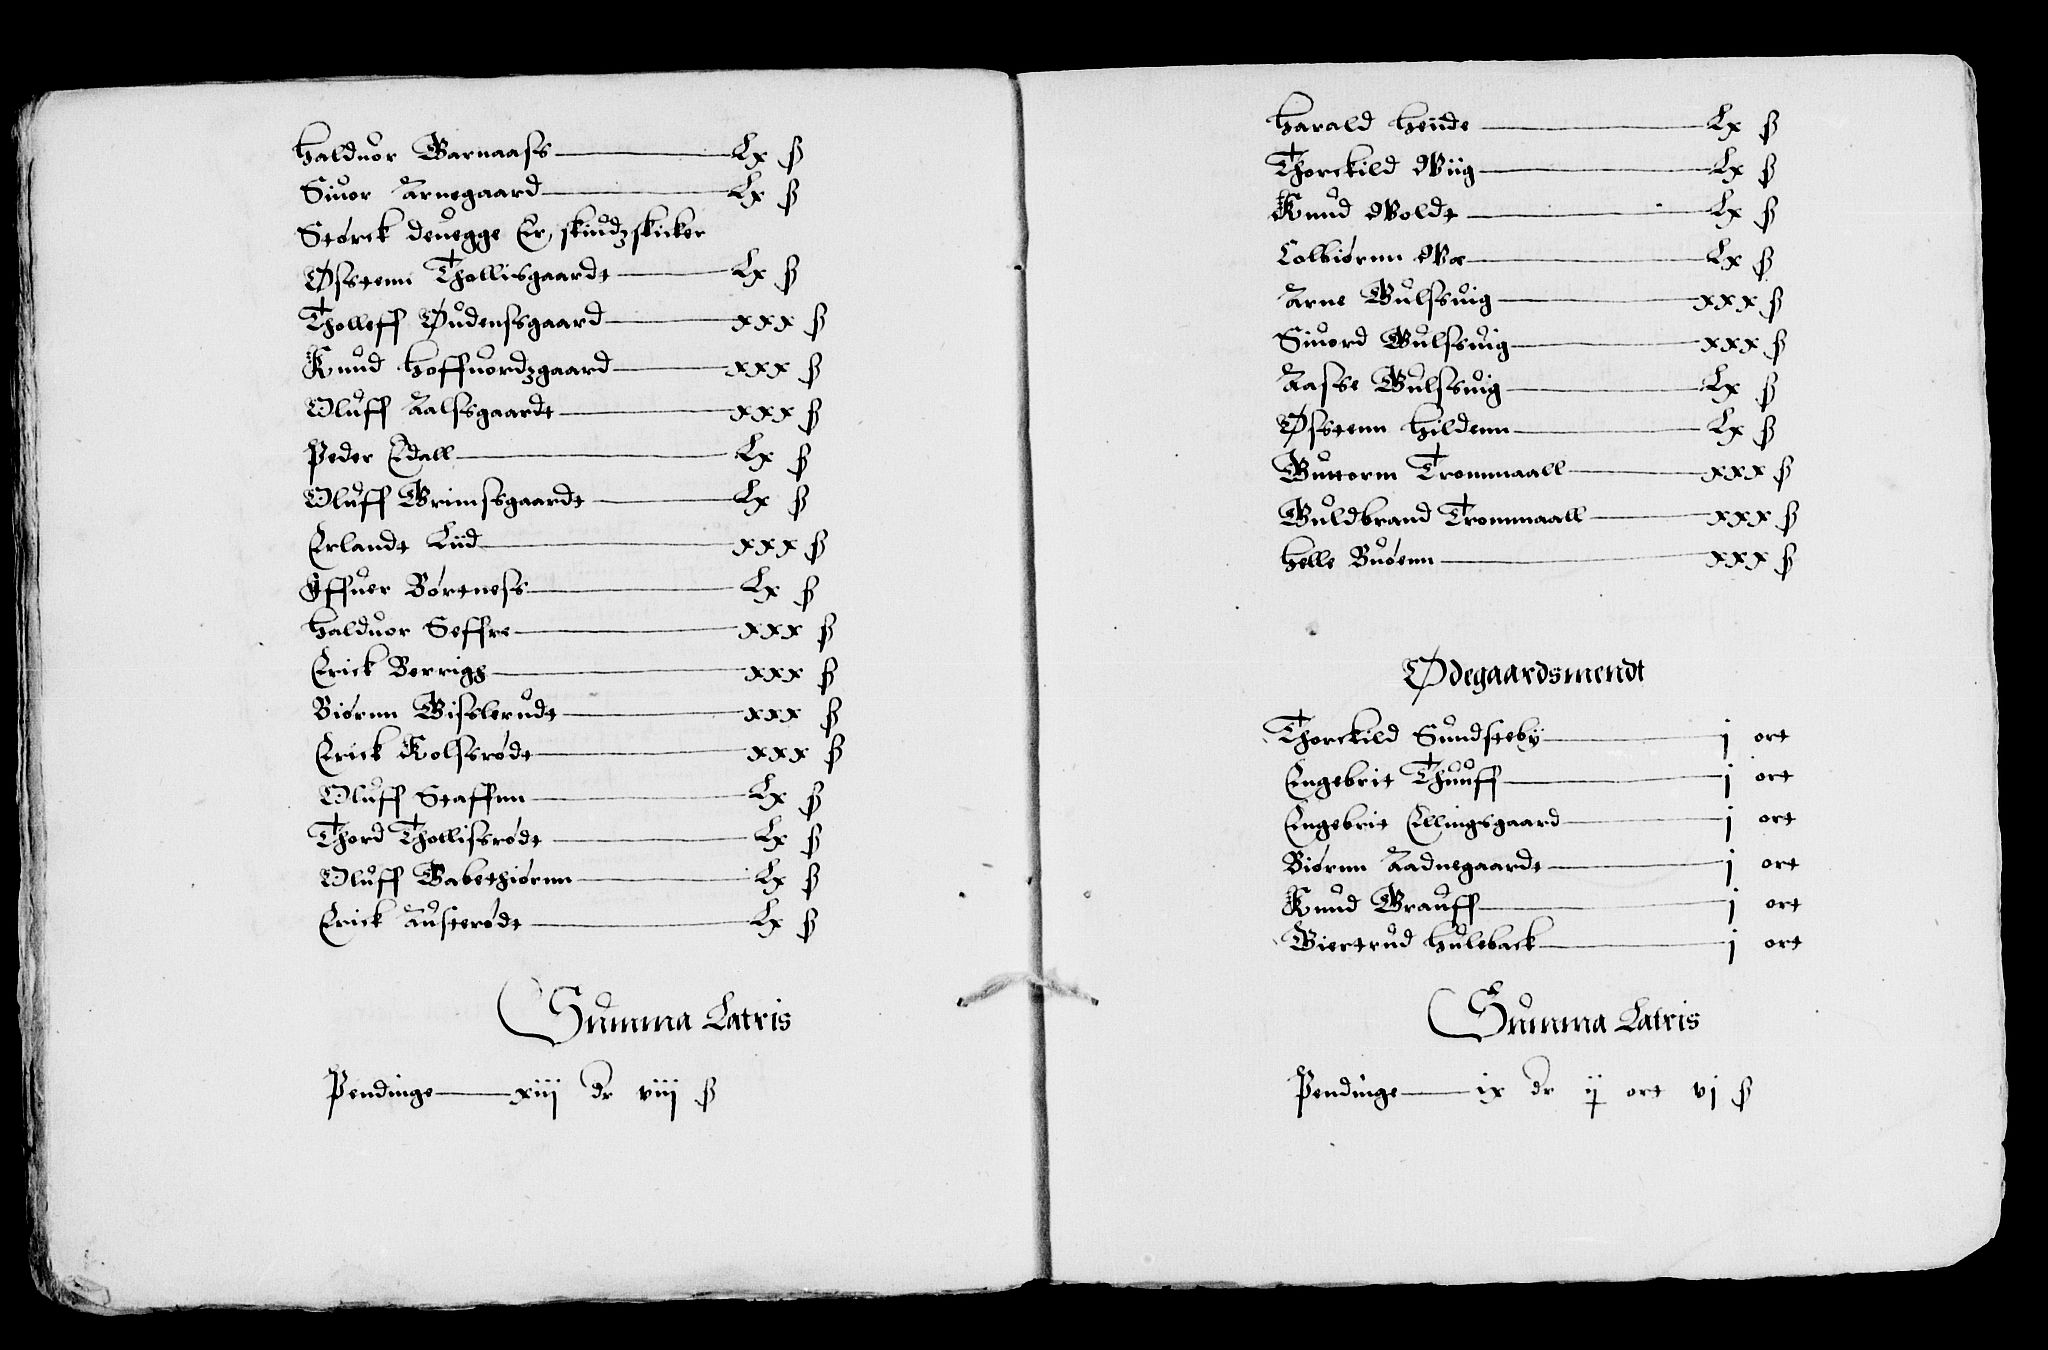 Halduor Garnaass — Lx ß
Siuor Arnegaard — Lx ß
Størck deuegge Er, skiudzskicker
Østenn Thollisgaardt — Lx ß
Tholleff Øudenssgaard — xxx ß
Knud Hoffuordzgaard — xxx ß
Oluff Aalssgaardt — xxx ß
Peder Edall — Lx ß
Oluff Grimssgaardt — Lx ß
Erlandt Liid — xxx ß
Iffuer Børtness — Lx ß
Halduor Seffre — xxx ß
Erick Berrigh — xxx ß
Biørnn Gisslerudt — xxx ß
Erick Kolssrødt — xxx ß
Oluff Staffnn — Lx ß
Thord Thollissrødt — Lx ß
Oluff Gabethiørnn — Lx ß
Erick Austerødt — Lx ß
Summa Latris
Pendinge — xiij dr viij ß
Harald Heude — Lx ß
Thorckild Wiig — Lx ß
Knud Woldt — Lx ß
Colbiørnn — Lx ß
Arne Gulssuig — xxx ß
Siuord Gulssuig — xxx ß
Aasse Gulssuig — Lx ß
Østenn Hildenn — Lx ß
Guttorm Trommaall — xxx ß
Guldbrand Trommaall — xxx ß
Helle Buøenn — xxx ß
Ødegaardsmendt
Thorckild Sundsteby — j ort
Engebrit Thuuff — j ort
Engebrit Ellingsgaard — j ort
Biørnn Aadnegaardt — j ort
Knud Grauff — j ort
Giertrud Huleback — j ort
Summa Latris
Pendinge — ix dr ij ort vj ß